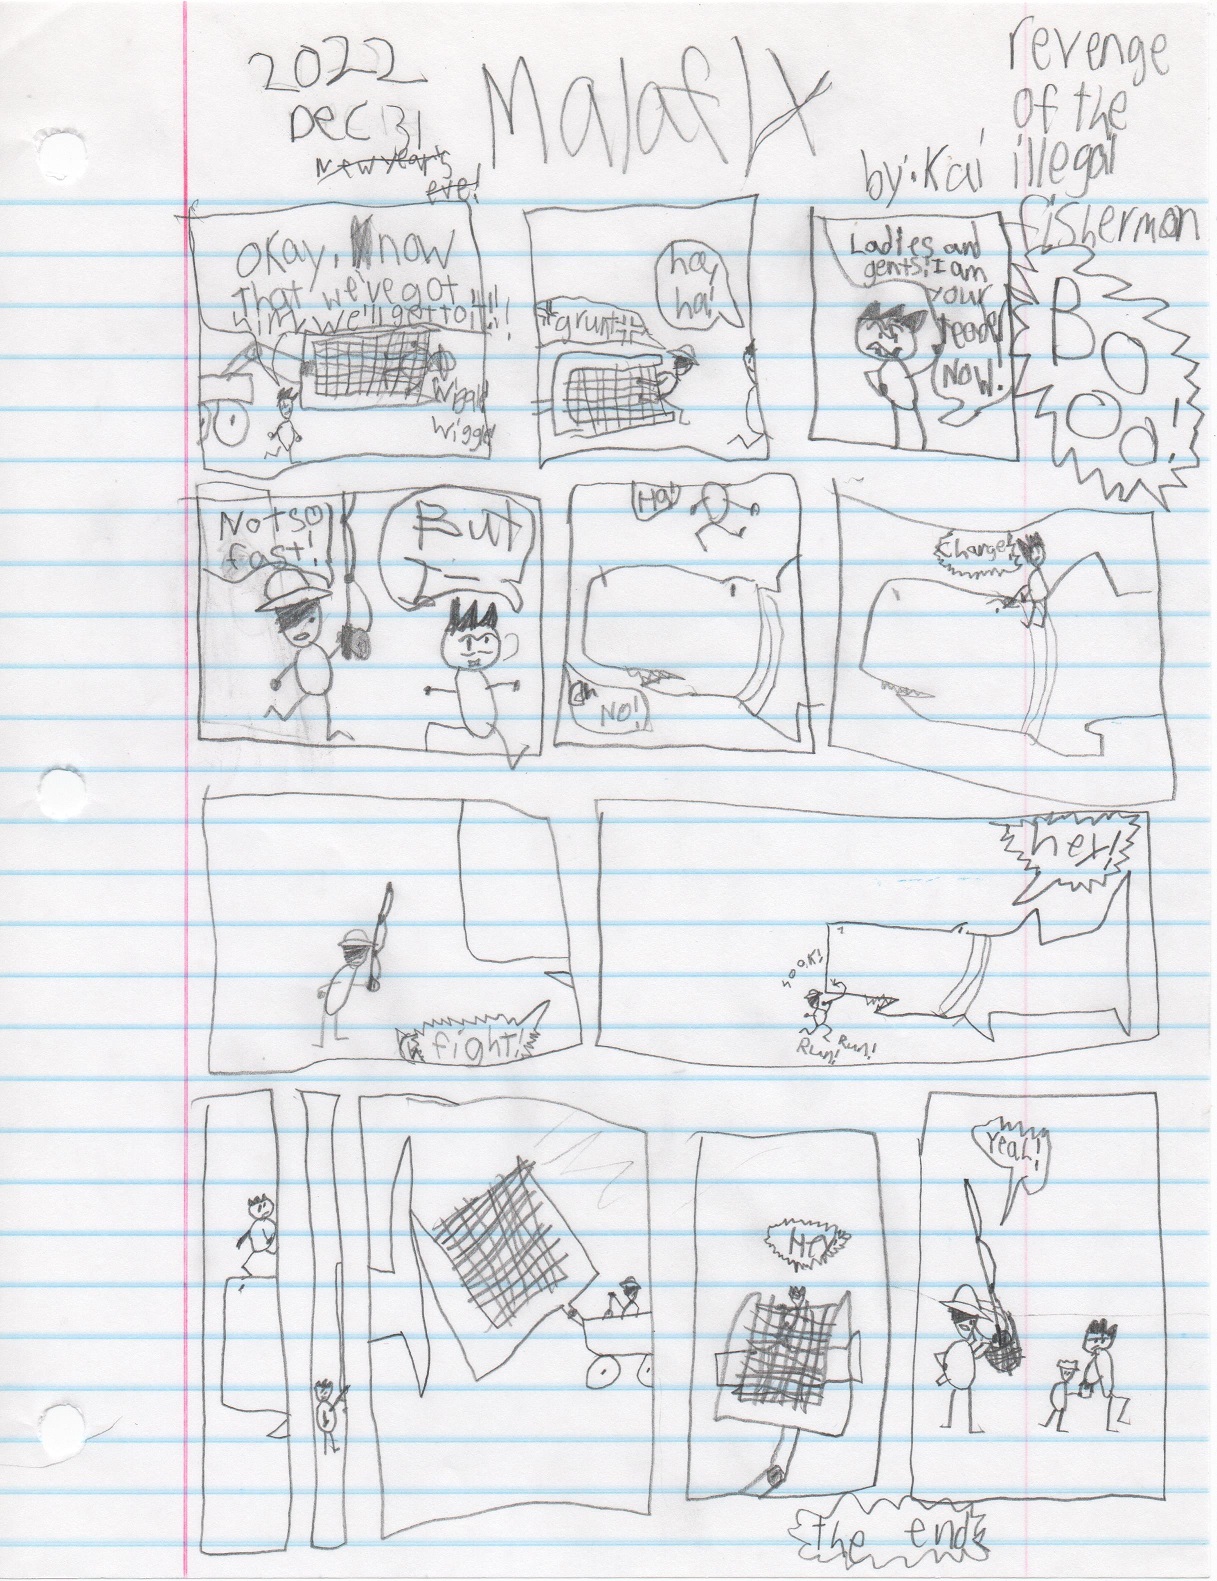 2022
DEC 31
New year's
eve!
Malaflx
by: Kai
revenge
of the
illegal
fisherman
Okay, now
that we've got
him, we'll get to it!!!
wiggle
wiggle
*grunt*
ha,
ha!
Ladies and
gents! I am
your
leader
NOW!
BOOOO!
Not so
fast!
But
Ha!
Oh
NO!
Charge!
fight!
hey!
hook!
Run! Run!
Hey
Yeah!
the end